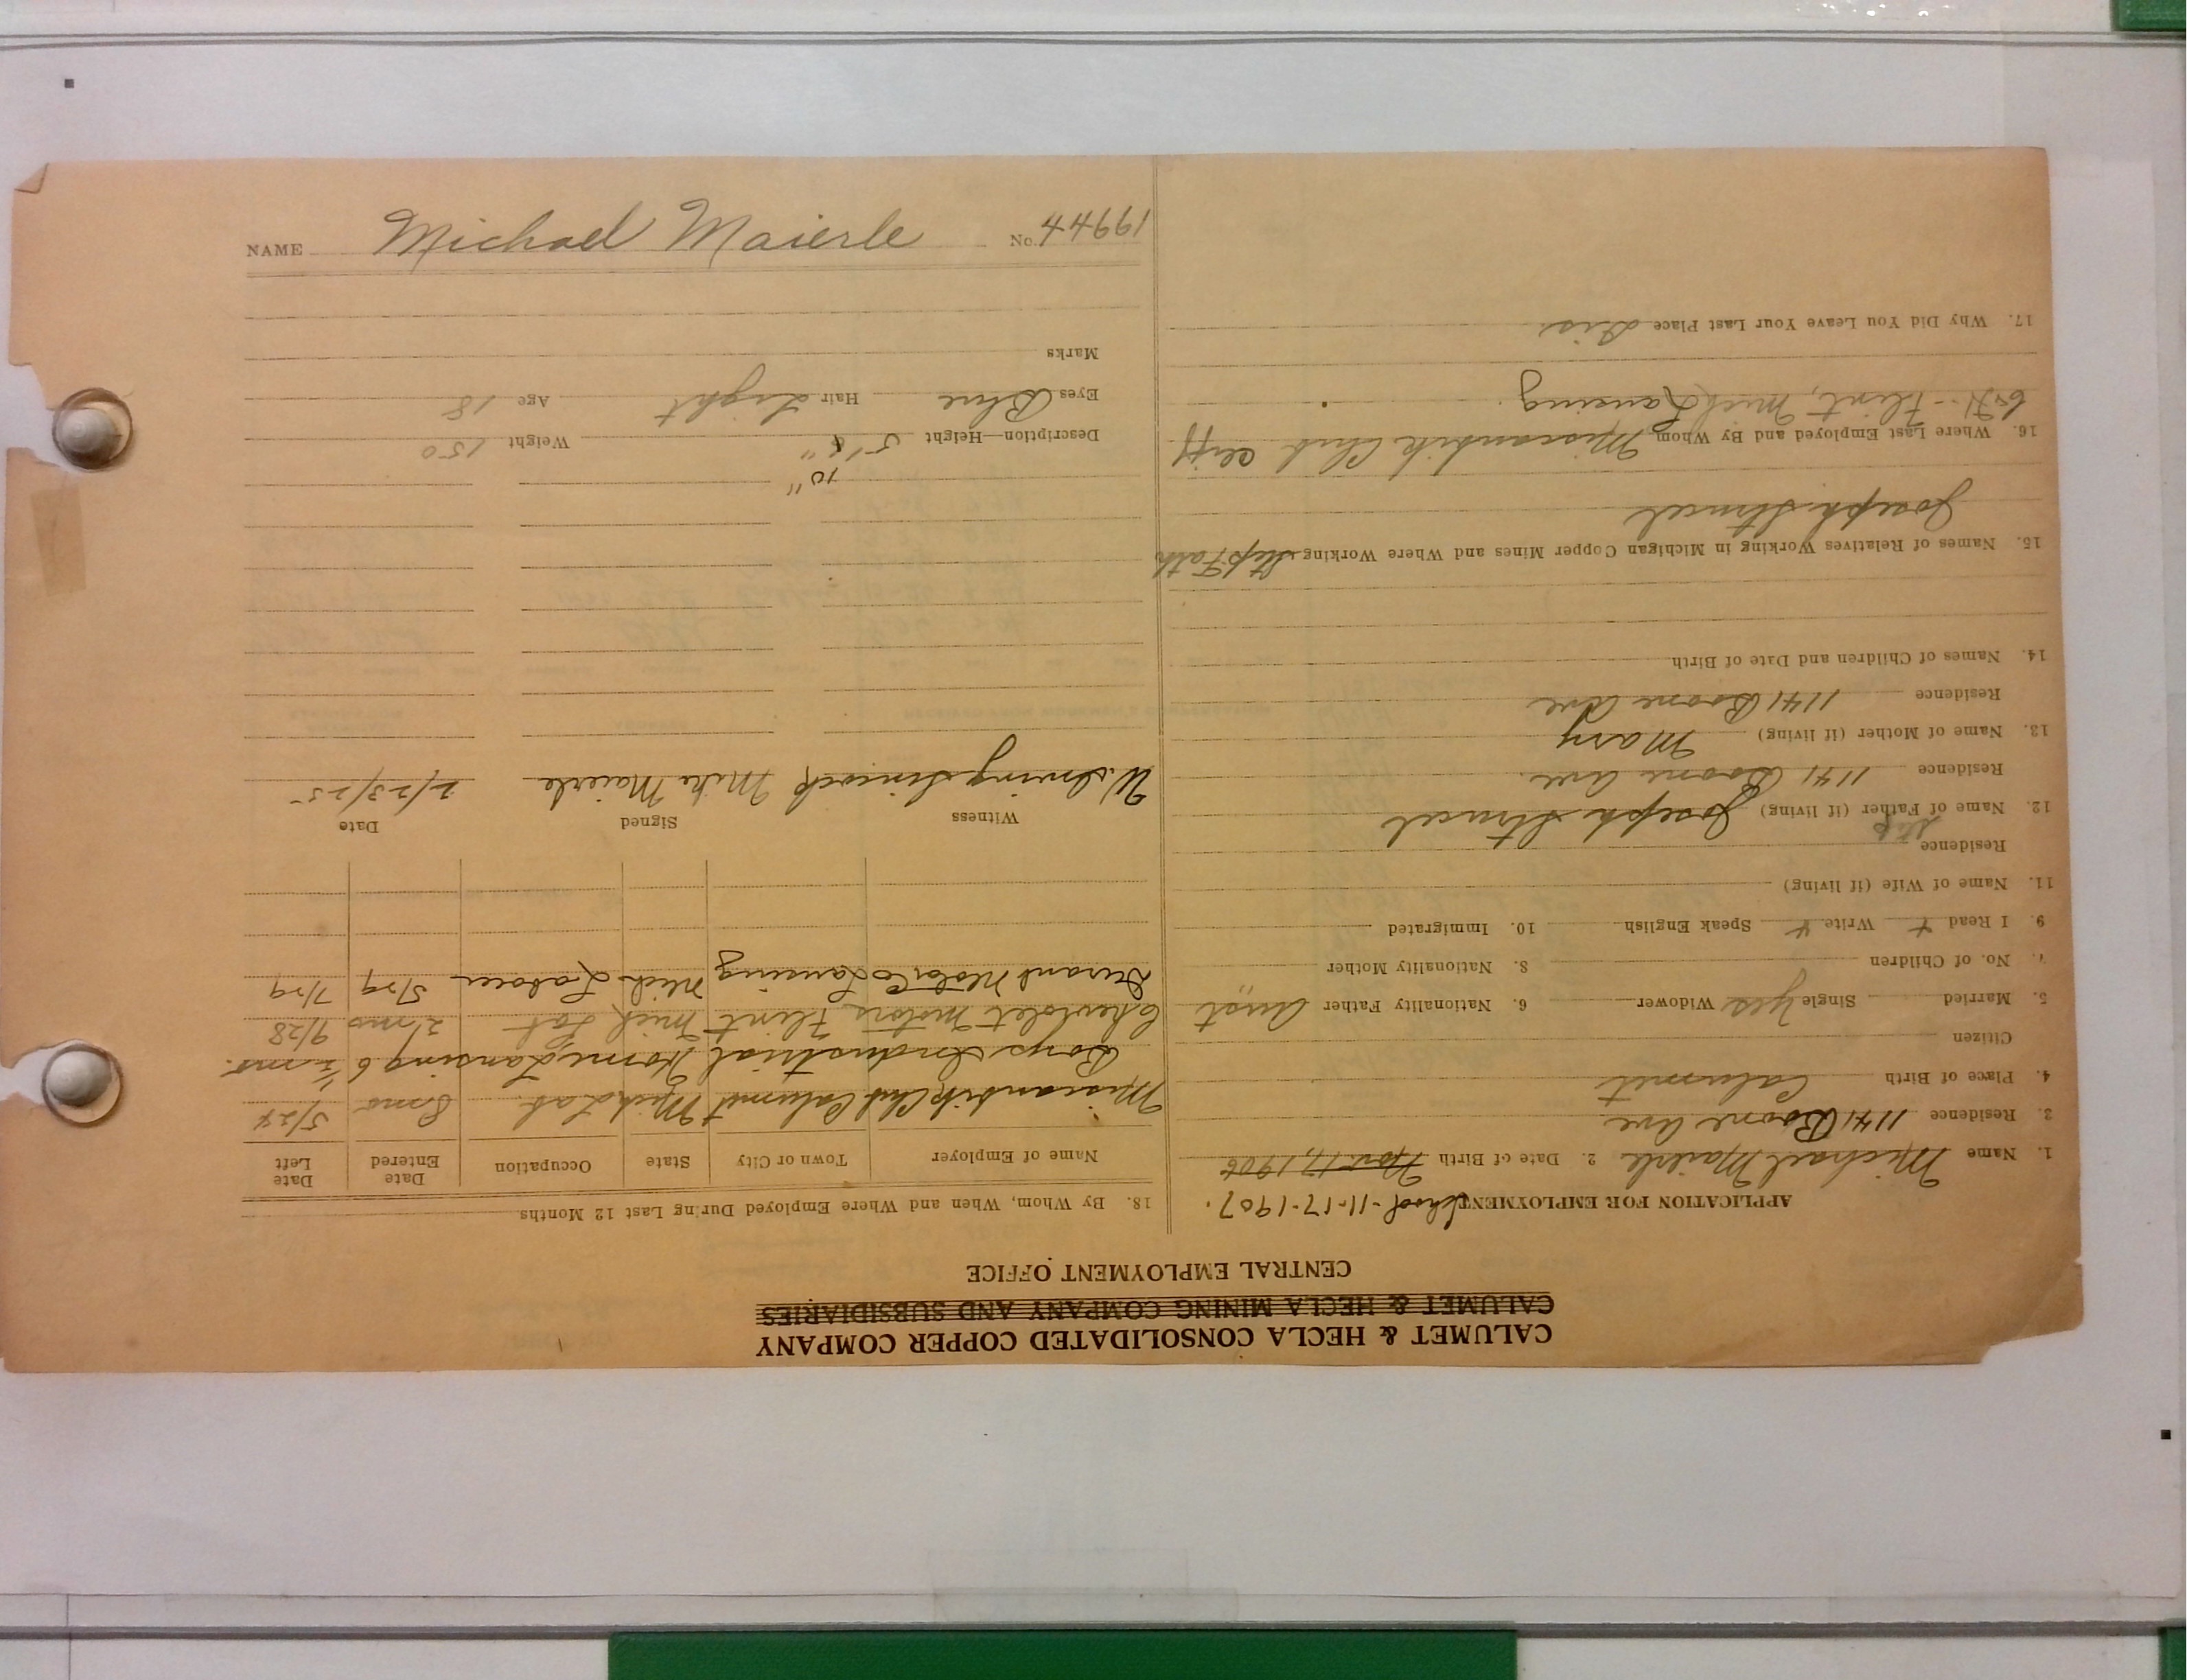 CALUMET & HECLA CONSOLIDATED COPPER COMPANY
CALUMET & HECLA MINING COMPANY AND SUBSIDIARIES
CENTRAL EMPLOYMENT OFFICE
APPLICATION FOR EMPLOYMENT School-11-17-1907.
1. Name Michael Maierle 2. Date of Birth Nov. 17, 1906
3. Residence 1141 Boone Ave
4. Place of Birth Calumet
Citizen
5. Married Single Yes Widower 6. Nationality Father Aust
7. No. of Children 8. Nationality Mother
9. I Read + Write + Speak English 10. Immigrated
11. Name of Wife (if living)
Residence
Step
12. Name of Father (if living) Joseph Strucel
Residence 1141 Boone Ave.
13. Name of Mother (if living) Mary
Residence 1141 Boone Ave
14. Names of Children and Date of Birth
15. Names of Relatives Working in Michigan Copper Mines and Where Working Step Fath
Joseph Strucel
16. Where Last Employed and By Whom Miscowabik Club Cliff
Flint, Mich Lansing
17. Why Did You Leave Your Last Place Dis
18. By Whom, When and Where Employed During Last 12 Months.
Name of Employer Town or City State Occupation Date Entered Date Left
Miscowabik Club Calumet Mich Lab. 8 mo 5/24
Boys Industrial Home, Lansing 6 1/2 mo.
Chevrolet Motors Flint Mich Lab 2 1/2 mo 9/28
Durant Motor Co Lansing Mich Laborer 5/29 7/29
Witness Signed Date
W. Irving Sincock Mike Maierle 2/23/25
10"
Description—Height 5' 8" Weight 150
Eyes Blue Hair Light Age 18
Marks
NAME Michael Maierle No. 44661